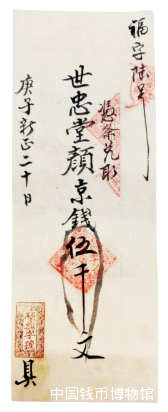 福字陸号
憑条兑取
世忠堂顏京錢伍千文
庚子新正二十日
具
中国钱币博物馆